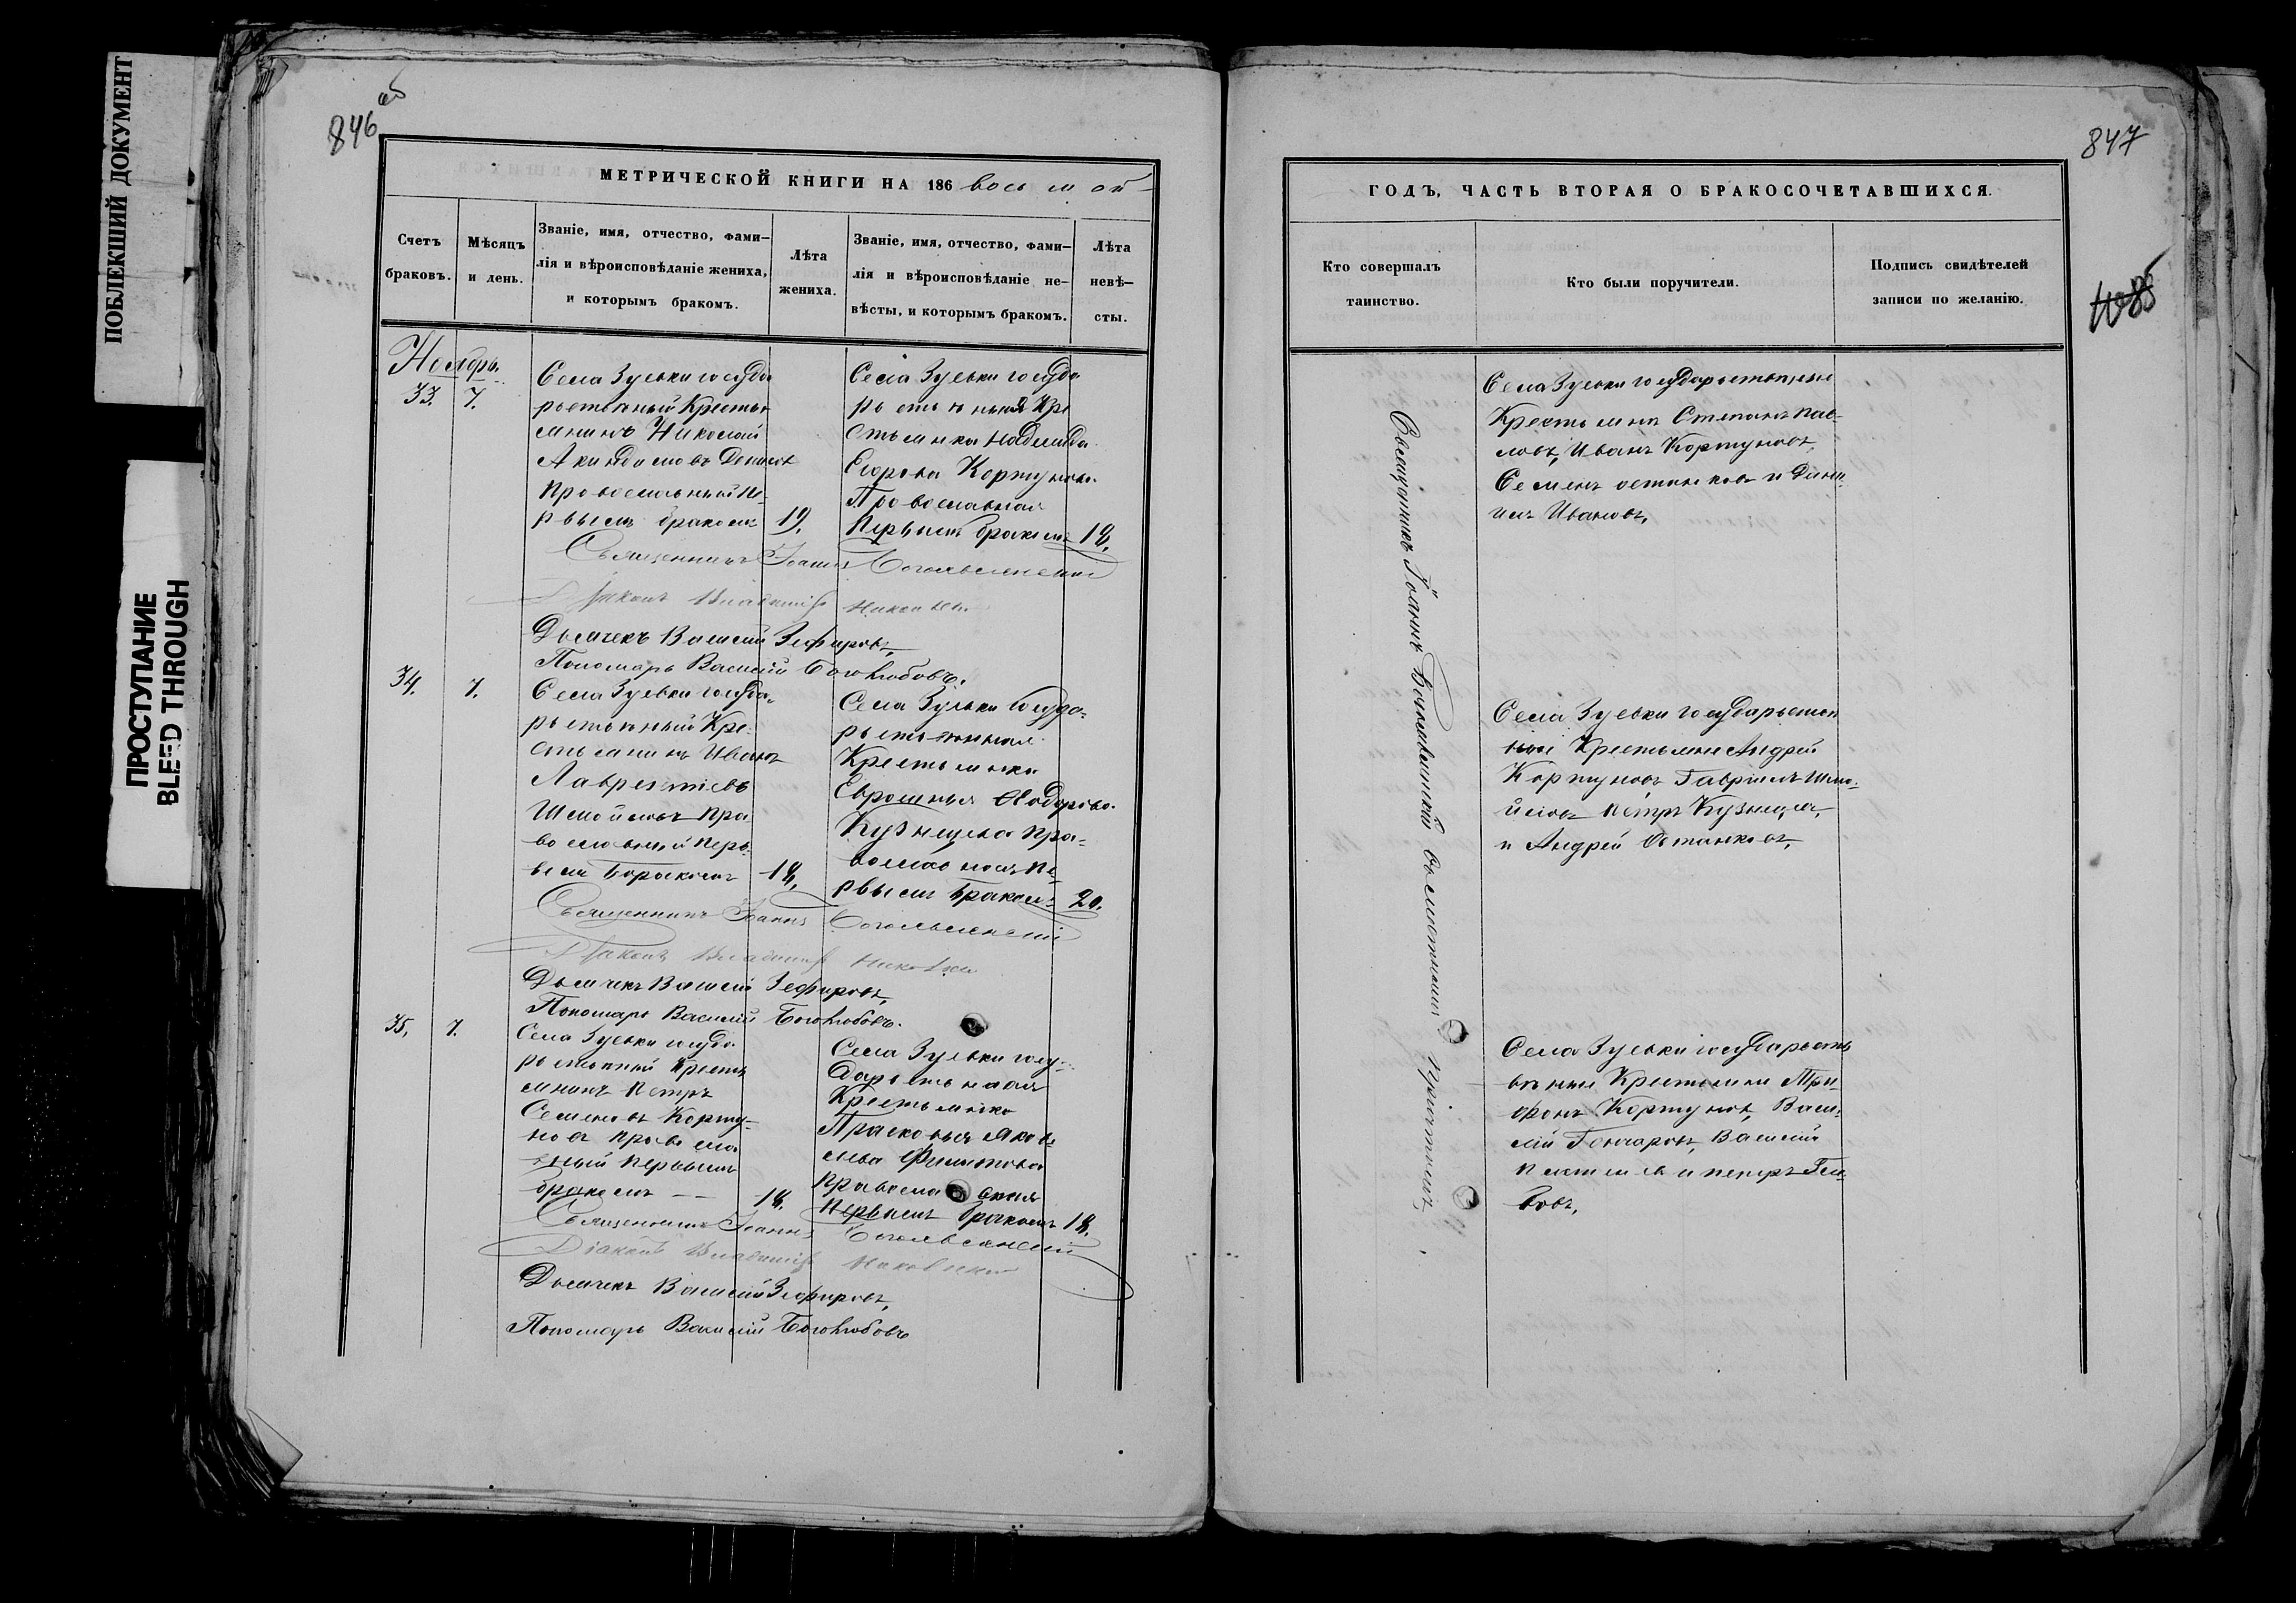 ПОБЛЕКШИЙ ДОКУМЕНТ
ПРОСТУПАНИЕ
BLEED THROUGH
846 об
МЕТРИЧЕСКОЙ КНИГИ НА 186 восьмой
Счетъ браковъ.
Мѣсяцъ и день.
Званіе, имя, отчество, фами-
лія и вѣроисповѣданіе жениха,
и которымъ бракомъ.
Лѣта жениха.
Званіе, имя, отчество, фами-
лія и вѣроисповѣданіе не-
вѣсты, и которымъ бракомъ.
Лѣта невѣ-
сты.
Ноябрь.
33. 7.
Села Зуевки госуда
рственный Крестья
янинъ Николай
Акиндиновъ Денисов
Православный пе-
рвымъ бракомъ 19.
Села Зуевки госуда
рственная Кре
стьянка Надежда
Егорова Кортунова
Православная
Первымъ бракомъ 18.
Священникъ Іоаннъ Богоявленскій
Діаконъ Владиміръ
Дьячекъ Василій Зефировъ,
Пономарь Василій Боголюбовъ.
34. 7.
Села Зуевки госуда-
рственный Кре-
стьянинъ Иванъ
Лаврентіевъ
Шмойловъ Пра
вославный перь-
вымъ Бракомъ 18.
Села Зуевки Госуда-
рственная
Крестьянка
Евросинья Ѳеодорова
Кузнецова Пра-
вославная пе-
рвымъ Бракомъ 20.
Священникъ Іоаннъ Богоявленскій
Діаконъ Владиміръ
Дьячекъ Василій Зефировъ,
Пономарь Василій Боголюбовъ.
35. 7.
Села Зуевки госуда
рственный Кресть
янинъ Петръ
Семеновъ Корту-
новъ Правосла
вный Первымъ
бракомъ — 18.
Села Зуевки госу-
дарственная
Крестьянка
Прасковья Яков
лева Филипова
Православная
Первымъ бракомъ 18.
Священникъ Іоаннъ Богоявленскій
Діаконъ Владиміръ
Дьячекъ Василій Зефировъ,
Пономарь Василій Боголюбовъ
847
ГОДЪ, ЧАСТЬ ВТОРАЯ О БРАКОСОЧЕТАВШИХСЯ.
Кто совершалъ
таинство.
Кто были поручители.
Подпись свидѣтелей
записи по желанію.
Священникъ Іоаннъ Богоявленскій съ мѣстнымъ причтомъ
Села Зуевки государственные
Крестьяне Степанъ Пав-
ловъ, Иванъ Кортуновъ,
Семенъ Астанковъ и Дани-
илъ Ивановъ.
Села Зуевки государствен
ные Крестьяне Андрей
Кортуновъ Гавріилъ Шмо-
йловъ Петръ Кузнецовъ,
и Андрей Остаковъ,
Села Зуевки государств
енные Крестьяне Три-
фонъ Кортуновъ, Васи-
лій Гончаровъ, Василій
и Петръ Гле-
бовъ.